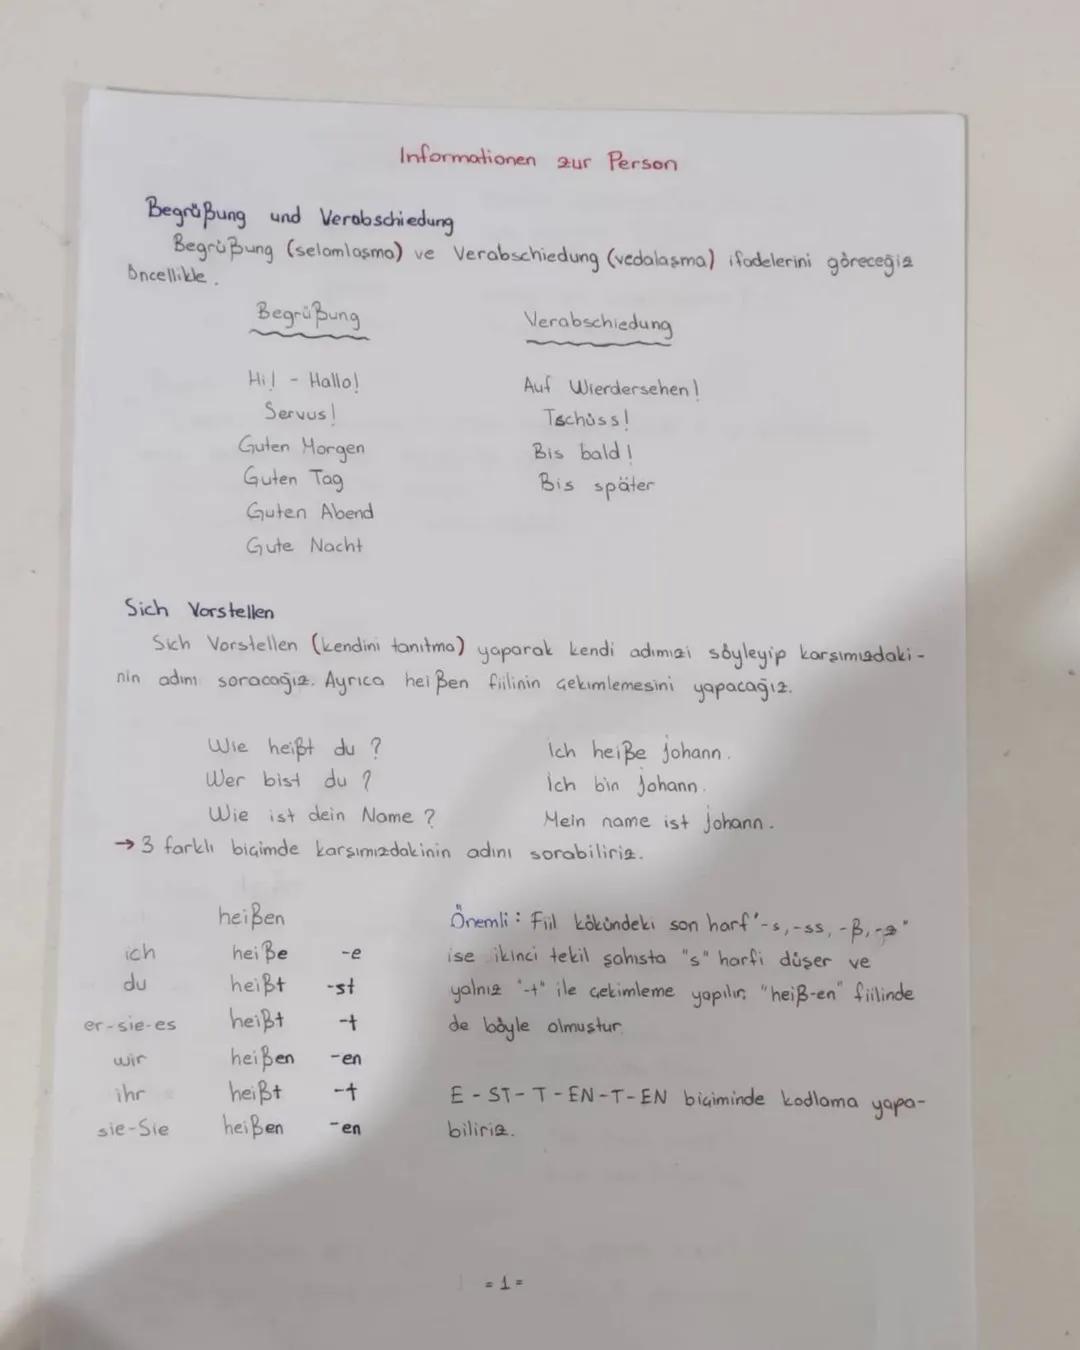 Informationen zur Person
Begrüßung und Verabschiedung
Begrüßung (selamlaşma) ve Verabschiedung (vedalaşma) ifadelerini göreceğiz
öncellikle.
Begrüßung Verabschiedung
Hi! - Hallo! Auf Wierdersehen!
Servus! Tschüss!
Guten Morgen Bis bald!
Guten Tag Bis später
Guten Abend
Gute Nacht
Sich Vorstellen
Sich Vorstellen (kendini tanıtma) yaparak kendi adımızı söyleyip karşımızdaki-
nin adını soracağız. Ayrıca heißen fiilinin çekimlemesini yapacağız.
Wie heißt du? Ich heiße Johann.
Wer bist du? İch bin Johann.
Wie ist dein Name? Mein name ist Johann.
→ 3 farklı biçimde karşımızdakinin adını sorabiliriz.
heißen
ich heiße -e
du heißt -st
er-sie-es heißt -t
wir heißen -en
ihr heißt -t
sie-Sie heißen -en
Önemli: Fiil kökündeki son harf '-s, -ss, -ß, -z"
ise ikinci tekil şahısta "s" harfi düşer ve
yalnız "-t" ile çekimleme yapılır. "heiß-en" fiilinde
de böyle olmuştur.
E - ST - T - EN - T - EN biçiminde kodlama yapa-
biliriz.
= 1 =